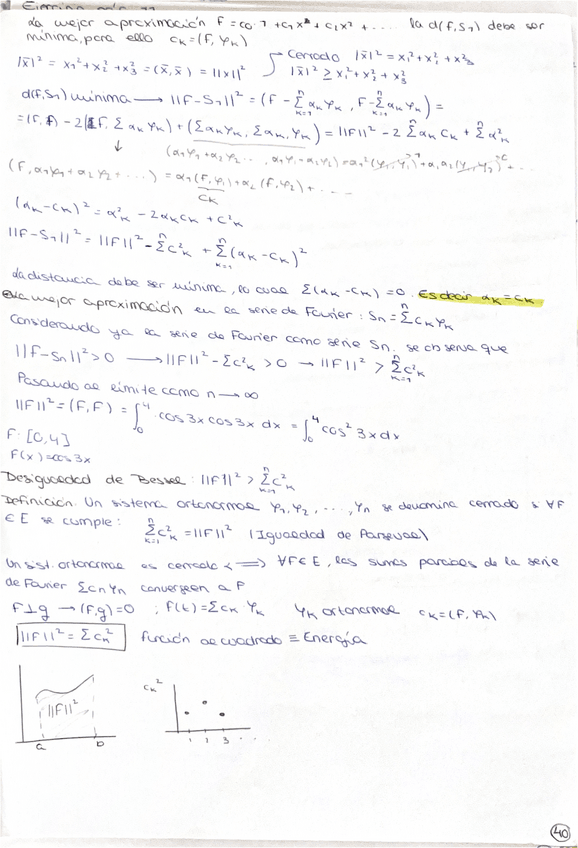 La mejor aproximación F = c₀·1 + c₁x² + c₁x² + .... la d(F,S₁) debe ser
mínima, para ello c_K = (F, φ_K)
|x̄|² = x₁² + x₂² + x₃² = (x̄, x̄) = ||x||²
Cerrado |x̄|² = x₁² + x₂² + x₃²
|x̄|² ≥ x₁² + x₂² + x₃²
d(F,S₁) mínima → ||F-S₁||² = (F - Σα_Kφ_K, F - Σα_Kφ_K) =
= (F, F) - 2(F, Σα_Kφ_K) + (Σα_Kφ_K, Σα_Kφ_K) = ||F||² - 2Σα_K c_K + Σα²_K
(F, α₁φ₁ + α₂φ₂ + ....) = α₁(F, φ₁) + α₂(F, φ₂) + ....
c_K
(α_K - c_K)² = α²_K - 2α_K c_K + c²_K
||F-S₁||² = ||F||² - Σc²_K + Σ(α_K - c_K)²
La distancia debe ser mínima, lo cual Σ(α_K - c_K) = 0. Es decir α_K = c_K
La mejor aproximación es la serie de Fourier: Sₙ = Σc_Kφ_K
Considerando ya la serie de Fourier como serie Sₙ, se observa que
||F-Sₙ||² > 0 → ||F||² - Σc²_K > 0 → ||F||² > Σc²_K
Pasando al límite como n → ∞
||F||² = (F, F) = ∫₀⁴ cos 3x cos 3x dx = ∫₀⁴ cos² 3x dx
F: [0,4]
F(x) = cos 3x
Desigualdad de Bessel: ||F||² > Σc²_K
Definición. Un sistema ortonormal φ₁, φ₂, ..., φₙ se denomina cerrado si ∀F
∈ E se cumple: Σc²_K = ||F||² (Igualdad de Parseval)
Un sist. ortonormal es cerrado <=> ∀F ∈ E, las sumas parciales de la serie
de Fourier Σcₙφₙ convergen a F
F⊥g → (F,g) = 0 ; F(t) = Σc_K·φ_K φ_K ortonormal c_K = (F, φ_K)
||F||² = Σc_K² función al cuadrado ≡ Energía
||F||²
a b
c_K²
1 2 3 ...
40